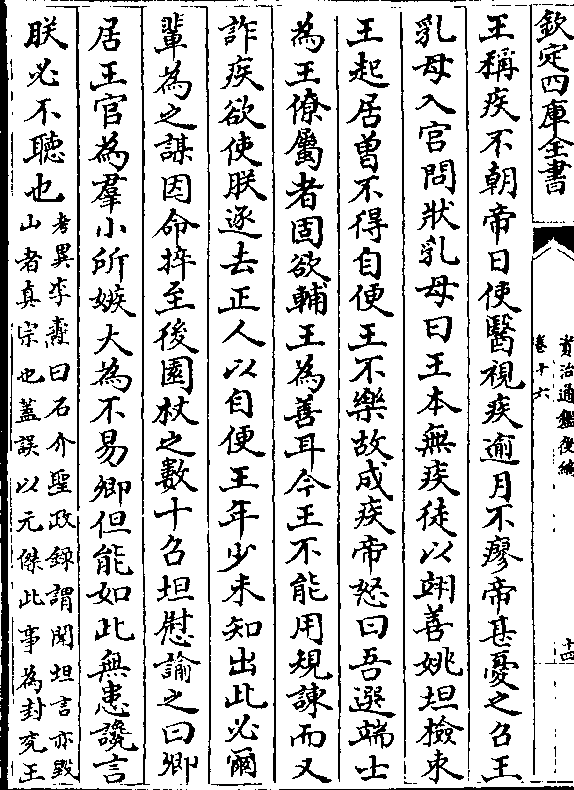 欽定四庫全書
資治通鑑後編
卷十六
十四
王稱疾不朝帝日使醫視疾逾月不瘳帝甚憂之召王
乳母入宫問狀乳母曰王本無疾徒以翊善姚坦檢束
王起居曽不得自便王不樂故成疾帝怒曰吾選端士
為王僚屬者固欲輔王為善耳今王不能用規諫而又
詐疾欲使朕逐去正人以自便王年少未知出此必爾
輩為之謀因命捽至後園杖之數十召坦慰諭之曰卿
居王宫為羣小所嫉大為不易卿但能如此無患讒言
朕必不聽也
考異李燾曰石介聖政錄謂聞坦言亦毁
山者真宗也蓋誤以元傑此事為封兖王